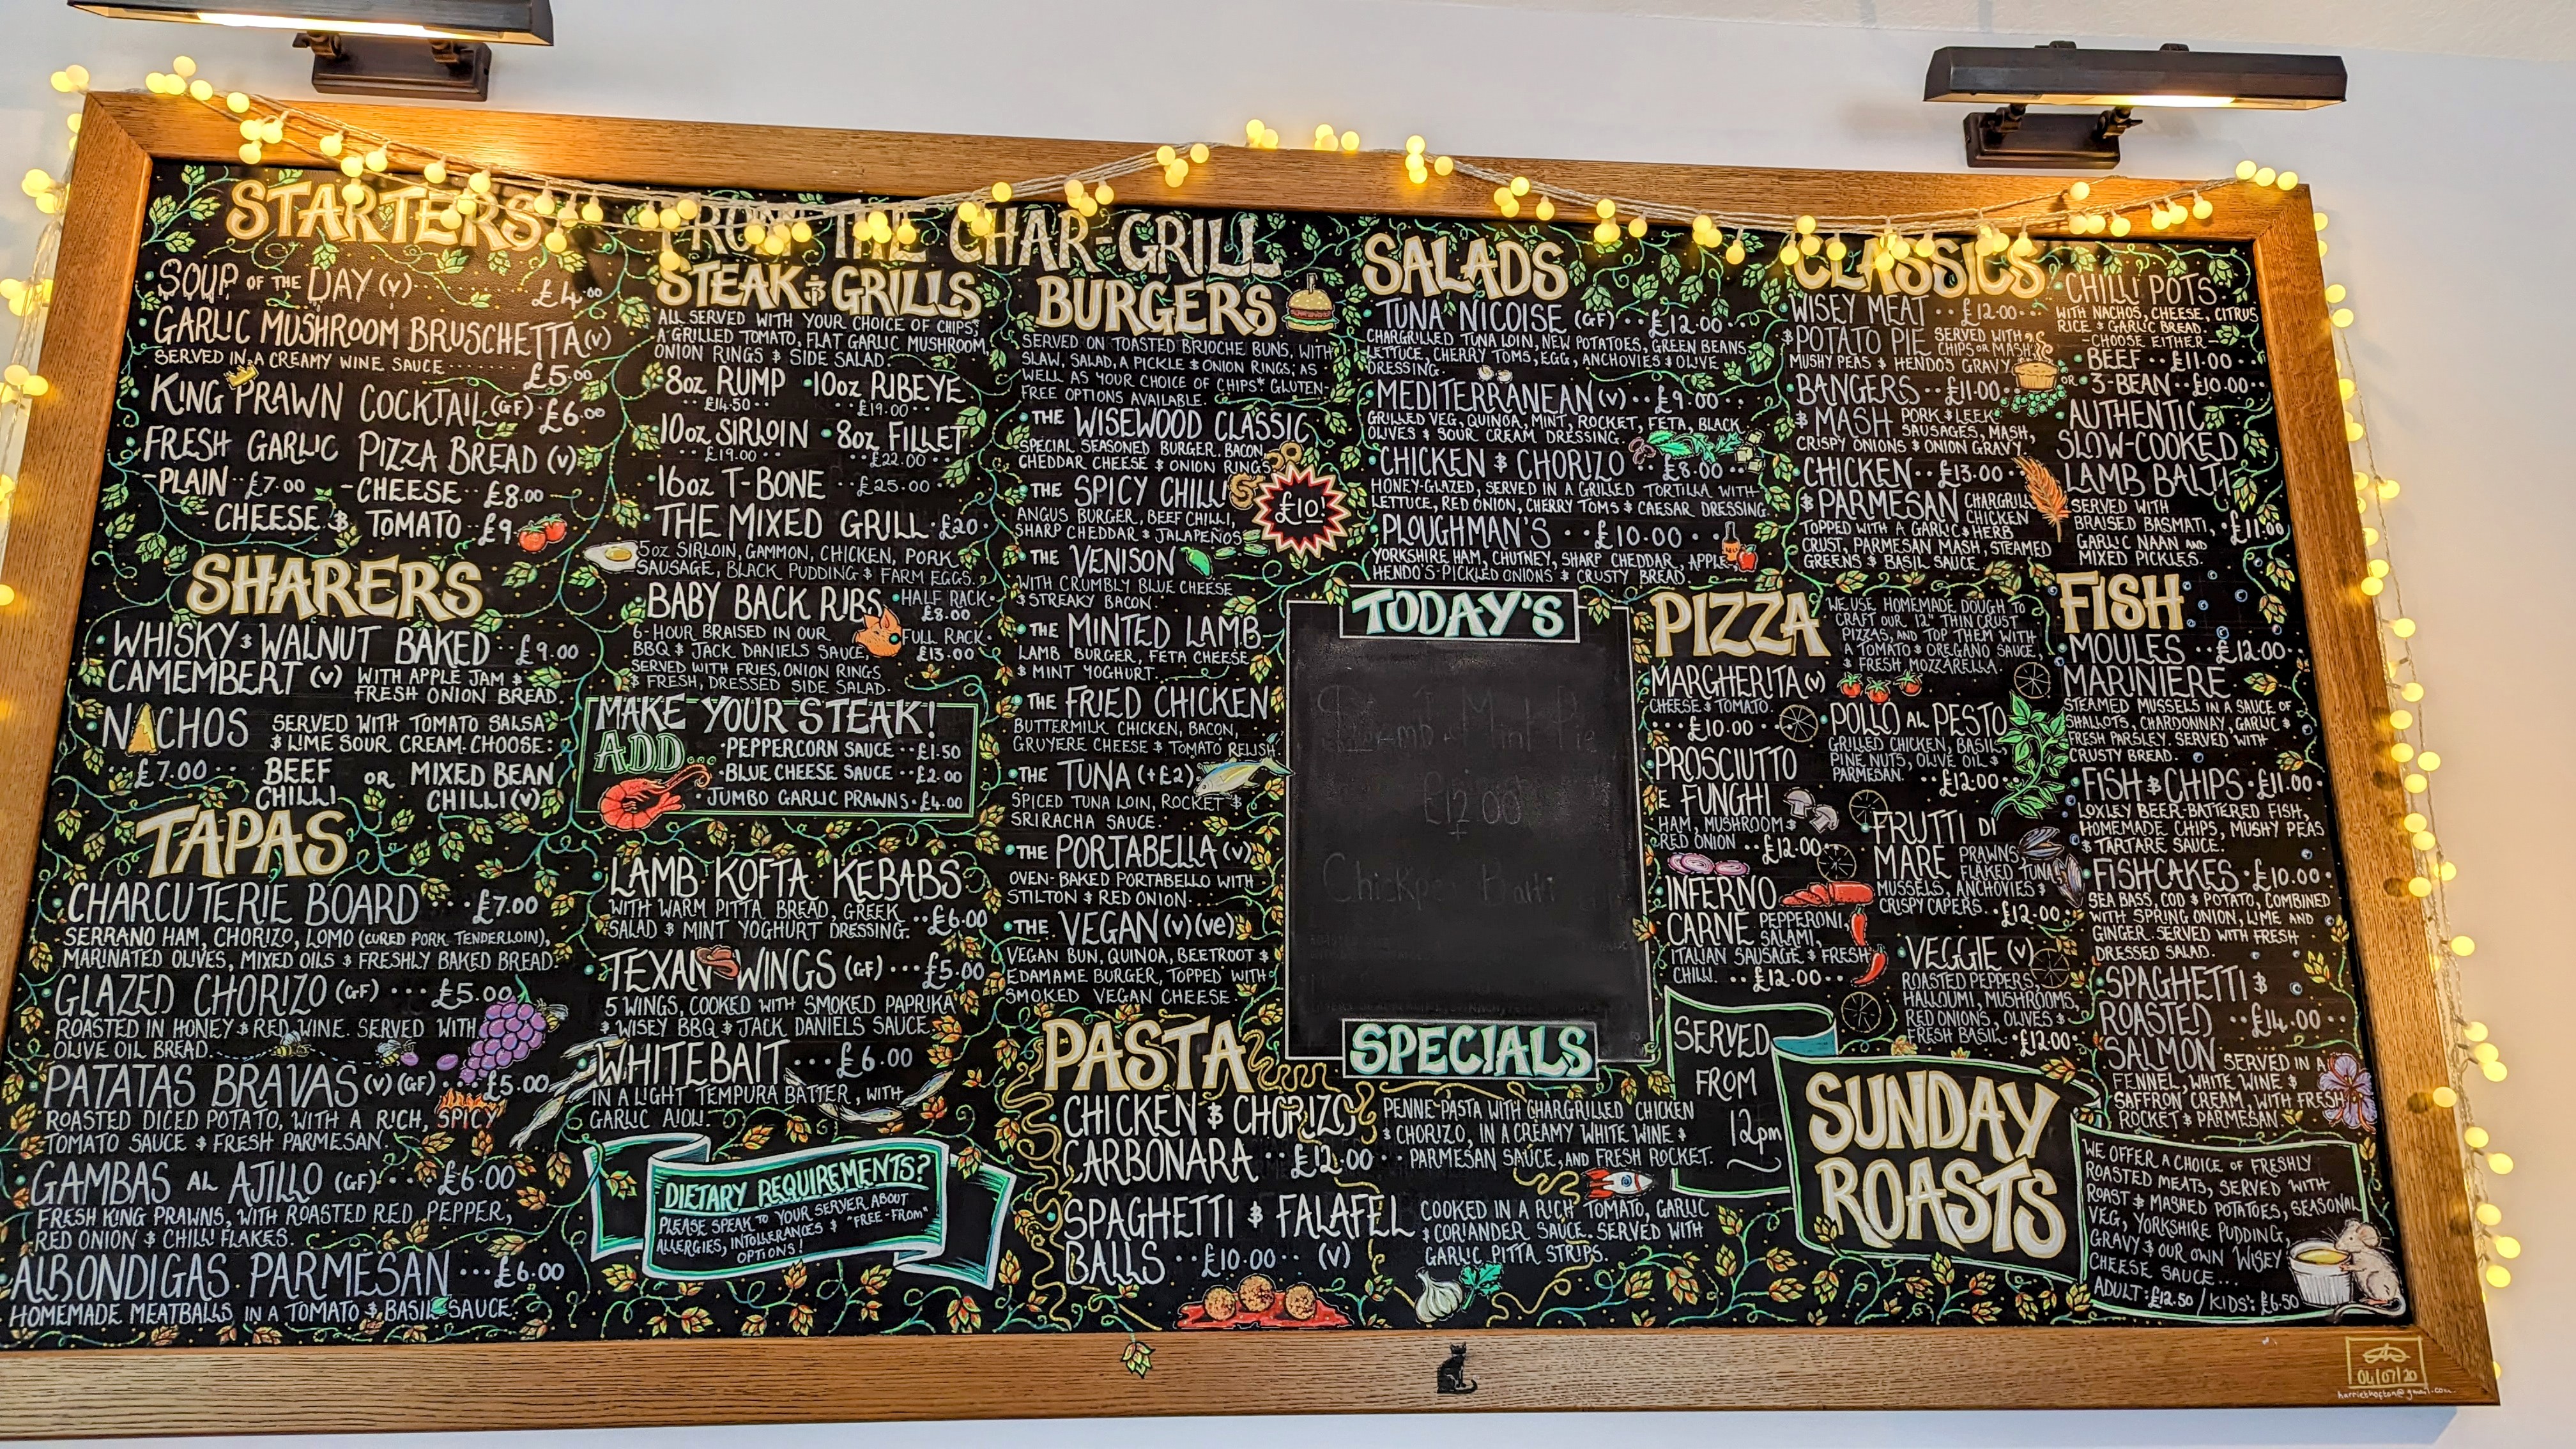 STARTERS
• SOUP OF THE DAY (V) £4.00
• GARLIC MUSHROOM BRUSCHETTA (V)
SERVED IN A CREAMY WINE SAUCE £5.00
• KING PRAWN COCKTAIL (GF) £6.00
• FRESH GARLIC PIZZA BREAD (V)
-PLAIN £7.00 -CHEESE £8.00
-CHEESE & TOMATO £9
SHARERS
• WHISKY & WALNUT BAKED £9.00
CAMEMBERT (V) WITH APPLE JAM &
FRESH ONION BREAD.
• NACHOS SERVED WITH TOMATO SALSA
& LIME SOUR CREAM. CHOOSE:
£7.00 BEEF CHILLI OR MIXED BEAN CHILLI (V)
TAPAS
• CHARCUTERIE BOARD £7.00
SERRANO HAM, CHORIZO, LOMO (CURED PORK TENDERLOIN),
MARINATED OLIVES, MIXED OILS & FRESHLY BAKED BREAD.
• GLAZED CHORIZO (GF) £5.00
ROASTED IN HONEY & RED WINE. SERVED WITH
OLIVE OIL BREAD.
• PATATAS BRAVAS (V) (GF) £5.00
ROASTED DICED POTATO, WITH A RICH, SPICY
TOMATO SAUCE & FRESH PARMESAN.
• GAMBAS AL AJILLO (GF) £6.00
FRESH KING PRAWNS, WITH ROASTED RED PEPPER,
RED ONION & CHILLI FLAKES.
• ALBONDIGAS PARMESAN £6.00
HOMEMADE MEATBALLS IN A TOMATO & BASIL SAUCE.
FROM THE CHAR-GRILL
STEAK & GRILLS
ALL SERVED WITH YOUR CHOICE OF CHIPS*,
A GRILLED TOMATO, FLAT GARLIC MUSHROOM,
ONION RINGS & SIDE SALAD.
• 8oz RUMP • 10oz RIBEYE
£14.50 £19.00
• 10oz SIRLOIN • 8oz FILLET
£19.00 £22.00
• 16oz T-BONE £25.00
• THE MIXED GRILL £20
5oz SIRLOIN, GAMMON, CHICKEN, PORK
SAUSAGE, BLACK PUDDING & FARM EGGS.
• BABY BACK RIBS • HALF RACK £8.00
6-HOUR BRAISED IN OUR • FULL RACK £13.00
BBQ & JACK DANIELS SAUCE,
SERVED WITH FRIES, ONION RINGS
& FRESH, DRESSED SIDE SALAD.
MAKE YOUR STEAK!
ADD...
• PEPPERCORN SAUCE £1.50
• BLUE CHEESE SAUCE £2.00
• JUMBO GARLIC PRAWNS £4.00
• LAMB KOFTA KEBABS
WITH WARM PITTA BREAD, GREEK £6.00
SALAD & MINT YOGHURT DRESSING.
• TEXAN WINGS (GF) £5.00
5 WINGS, COOKED WITH SMOKED PAPRIKA
& WISEY BBQ & JACK DANIELS SAUCE
• WHITEBAIT £6.00
IN A LIGHT TEMPURA BATTER, WITH
GARLIC AIOLI.
DIETARY REQUIREMENTS?
PLEASE SPEAK TO YOUR SERVER ABOUT
ALLERGIES, INTOLLERANCES & "FREE-FROM"
OPTIONS!
BURGERS
SERVED ON TOASTED BRIOCHE BUNS, WITH
SLAW, SALAD, A PICKLE & ONION RINGS; AS
WELL AS YOUR CHOICE OF CHIPS* GLUTEN-
FREE OPTIONS AVAILABLE.
• THE WISEWOOD CLASSIC
SPECIAL SEASONED BURGER, BACON,
CHEDDAR CHEESE & ONION RINGS
• THE SPICY CHILLI
ANGUS BURGER, BEEF CHILLI,
SHARP CHEDDAR & JALAPEÑOS
£10!
• THE VENISON
WITH CRUMBLY BLUE CHEESE
& STREAKY BACON.
• THE MINTED LAMB
LAMB BURGER, FETA CHEESE
& MINT YOGHURT.
• THE FRIED CHICKEN
BUTTERMILK CHICKEN, BACON,
GRUYERE CHEESE & TOMATO RELISH.
• THE TUNA (+£2)
SPICED TUNA LOIN, ROCKET &
SRIRACHA SAUCE.
• THE PORTABELLA (V)
OVEN-BAKED PORTABELLO WITH
STILTON & RED ONION.
• THE VEGAN (V) (VE)
VEGAN BUN, QUINOA, BEETROOT &
EDAMAME BURGER, TOPPED WITH
SMOKED VEGAN CHEESE.
PASTA
• CHICKEN & CHORIZO CARBONARA £12.00
PENNE PASTA WITH CHARGRILLED CHICKEN
& CHORIZO, IN A CREAMY WHITE WINE &
PARMESAN SAUCE, AND FRESH ROCKET.
• SPAGHETTI & FALAFEL BALLS £10.00 (V)
COOKED IN A RICH TOMATO, GARLIC
& CORIANDER SAUCE. SERVED WITH
GARLIC PITTA STRIPS.
SALADS
• TUNA NICOISE (GF) £12.00
CHARGRILLED TUNA LOIN, NEW POTATOES, GREEN BEANS
LETTUCE, CHERRY TOMS, EGG, ANCHOVIES & OLIVE
DRESSING.
• MEDITERRANEAN (V) £9.00
GRILLED VEG, QUINOA, MINT, ROCKET, FETA, BLACK
OLIVES & SOUR CREAM DRESSING.
• CHICKEN & CHORIZO £8.00
HONEY-GLAZED, SERVED IN A GRILLED TORTILLA WITH
LETTUCE, RED ONION, CHERRY TOMS & CAESAR DRESSING.
• PLOUGHMAN'S £10.00
YORKSHIRE HAM, CHUTNEY, SHARP CHEDDAR, APPLE,
HENDO'S-PICKLED ONIONS & CRUSTY BREAD.
TODAY'S
Mint Pie
£12.00
SPECIALS
CLASSICS
• WISEY MEAT £12.00
& POTATO PIE SERVED WITH
CHIPS OR MASH,
MUSHY PEAS & HENDOS GRAVY
• BANGERS £11.00
& MASH PORK & LEEK
SAUSAGES, MASH,
CRISPY ONIONS & ONION GRAVY
• CHICKEN £13.00
& PARMESAN CHARGRILL
CHICKEN
TOPPED WITH A GARLIC & HERB
CRUST, PARMESAN MASH, STEAMED
GREENS & BASIL SAUCE
• CHILLI POTS
WITH NACHOS, CHEESE, CITRUS
RICE & GARLIC BREAD.
-CHOOSE EITHER-
• BEEF £11.00
OR • 3-BEAN £10.00
• AUTHENTIC
SLOW-COOKED
LAMB BALTI
SERVED WITH
BRAISED BASMATI, £11.00
GARLIC NAAN AND
MIXED PICKLES.
PIZZA
WE USE HOMEMADE DOUGH TO
CRAFT OUR 12" THIN CRUST
PIZZAS, AND TOP THEM WITH
A TOMATO & OREGANO SAUCE,
& FRESH MOZZARELLA.
• MARGHERITA (V)
CHEESE & TOMATO.
£10.00
• PROSCIUTTO
E FUNGHI
HAM, MUSHROOM &
RED ONION £12.00
• INFERNO
CARNE PEPPERONI,
SALAMI,
ITALIAN SAUSAGE & FRESH
CHILLI. £12.00
• POLLO AL PESTO
GRILLED CHICKEN, BASIL
PINE NUTS, OLIVE OIL &
PARMESAN. £12.00
• FRUTTI DI
MARE PRAWNS
FLAKED TUNA
MUSSELS, ANCHOVIES &
CRISPY CAPERS. £12.00
• VEGGIE (V)
ROASTED PEPPERS,
HALLOUMI, MUSHROOMS,
RED ONIONS, OLIVES &
FRESH BASIL £12.00
FISH
• MOULES £12.00
MARINIERE
STEAMED MUSSELS IN A SAUCE OF
SHALLOTS, CHARDONNAY, GARLIC &
FRESH PARSLEY. SERVED WITH
CRUSTY BREAD.
• FISH & CHIPS £11.00
LOXLEY BEER-BATTERED FISH,
HOMEMADE CHIPS, MUSHY PEAS
& TARTARE SAUCE.
• FISHCAKES £10.00
SEA BASS, COD & POTATO, COMBINED
WITH SPRING ONION, LIME AND
GINGER. SERVED WITH FRESH
DRESSED SALAD.
• SPAGHETTI &
ROASTED £14.00
SALMON SERVED IN A
FENNEL, WHITE WINE &
SAFFRON CREAM, WITH FRESH
ROCKET & PARMESAN.
SERVED
FROM
12pm
SUNDAY
ROASTS
WE OFFER A CHOICE OF FRESHLY
ROASTED MEATS, SERVED WITH
ROAST & MASHED POTATOES, SEASONAL
VEG, YORKSHIRE PUDDING,
GRAVY & OUR OWN WISEY
CHEESE SAUCE...
ADULT: £12.50 / KIDS: £6.50
04/07/20
harriethopton@gmail.com